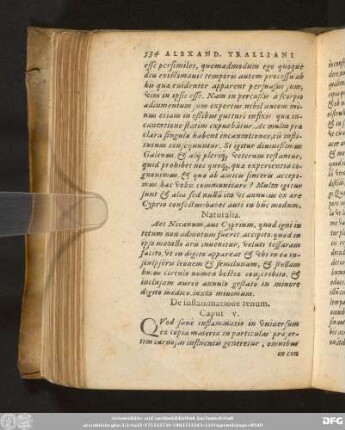 534 ALEXAND. TRALLIANI
esse persimiles, quemadmodum ego quoque
diu existimaui: temporis autem processu ab
his quæ euidenter apparent persuasus sum,
vim in ipsis esse. Nam in percussis a scorpio
adiumentum sum expertus: nihil autem mi
nus etiam in ossibus gutturi infixis quæ in-
cantatione statim expuebantur. Ac multa præ
clara singula habent incantationes, sui insti-
tutum consequuntur. Si igitur diuinissimus
Galenus, & alij plerique veterum testantur,
quid prohibet nos quoque, quæ experientia co-
gnouimus, & quæ ab amicis sinceris accepi-
mus, hæc vobis communicare? Multa igitur
sunt & alia sed nulla ita vt annulus ex ære
Cyprio conficiebatur auté in húc modum.
Naturalia.
Aes Nicænum aut Cyprium, quod igni in
totum non admotum fuerit, accipito: quod in
ipso metallo æris inuenitur, veluti tessaram
facito, vt in digito appareat & vbi in ea in-
sculpseris leonem & semilunam, & stellam
huius circulo nomen bestiæ conscribito, &
inclusum aureo annulo gestato in minore
digito medico, iuxta minimum.
De inflammatione renum.
Caput V.
QVod sanè inflammatio in vniuersum
ex copia materiæ in particulas præser-
tim carnosas influentis generetur, omnibus
in con